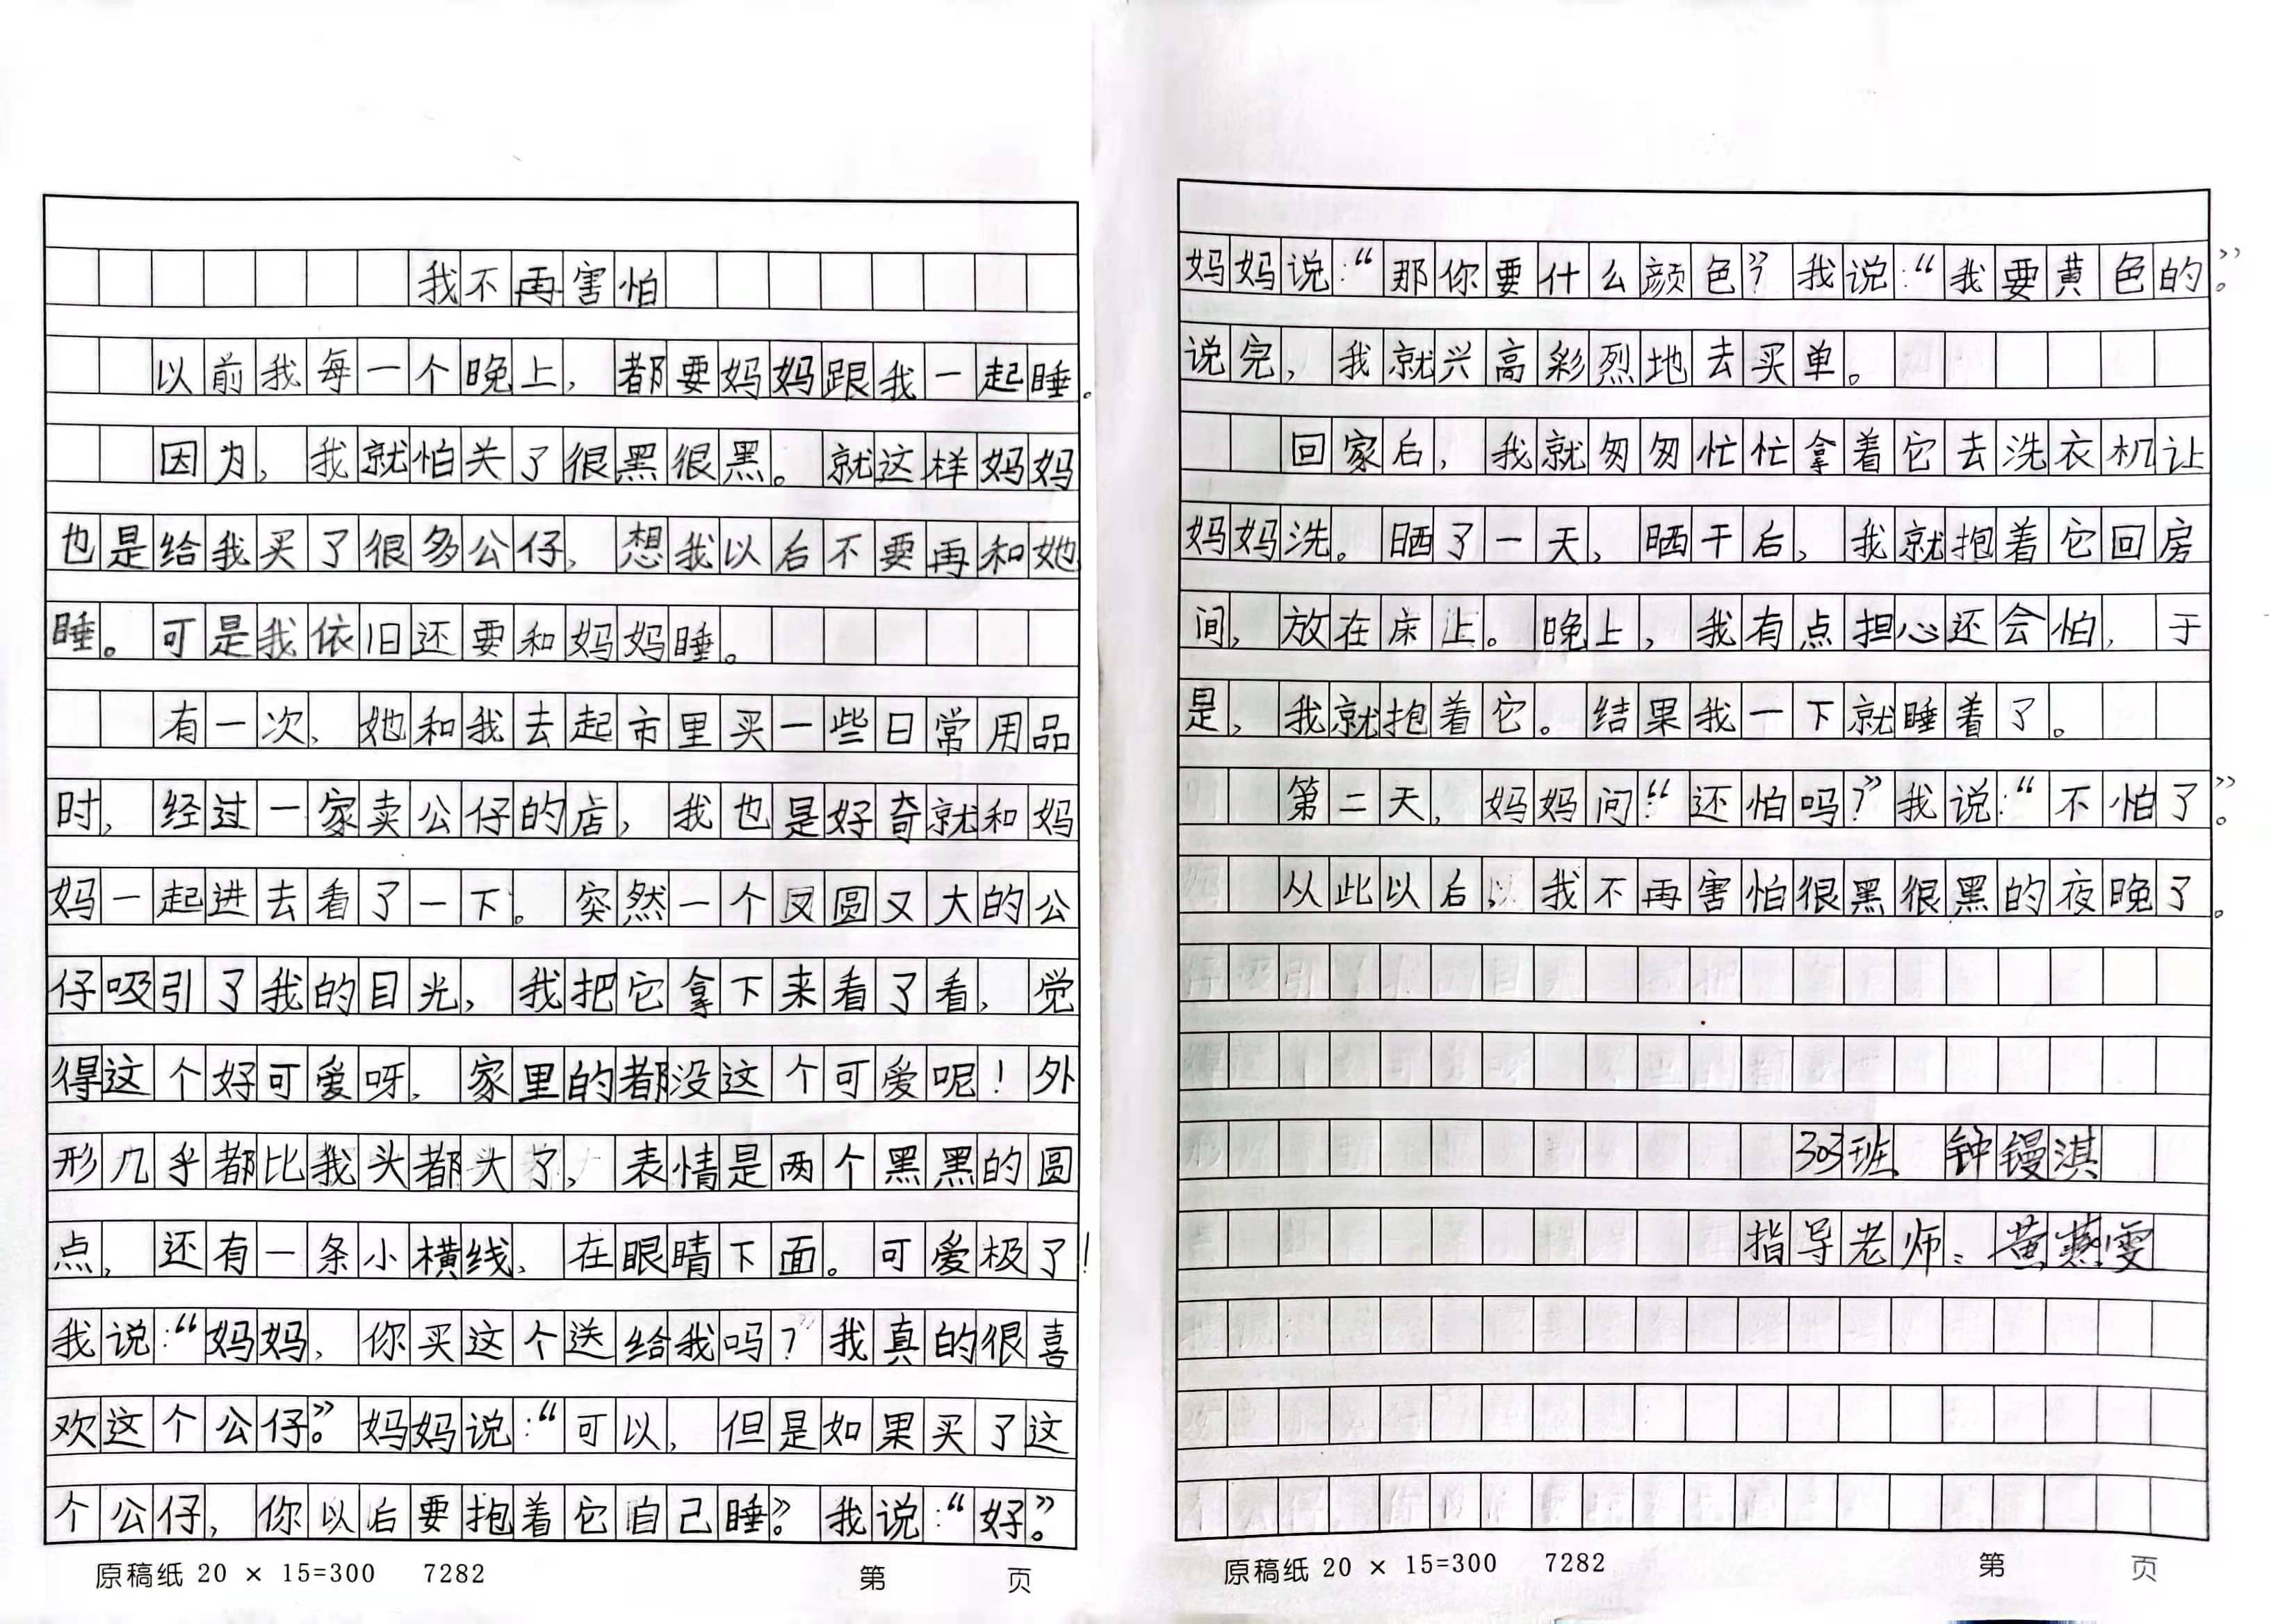 我不再害怕
以前我每一个晚上，都要妈妈跟我一起睡。
因为，我就怕关了很黑很黑。就这样妈妈
也是给我买了很多公仔，想我以后不要再和她
睡。可是我依旧还要和妈妈睡。
有一次，她和我去起市里买一些日常用品
时，经过一家卖公仔的店，我也是好奇就和妈
妈一起进去看了一下。突然一个又圆又大的公
仔吸引了我的目光，我把它拿下来看了看，觉
得这个好可爱呀，家里的都没这个可爱呢！外
形几乎都比我头都大了，表情是两个黑黑的圆
点，还有一条小横线，在眼睛下面。可爱极了！
我说：“妈妈，你买这个送给我吗？”我真的很喜
欢这个公仔。”妈妈说：“可以，但是如果买了这
个公仔，你以后要抱着它自己睡。”我说：“好。”
原稿纸 20 × 15=300 7282 第 页
妈妈说：“那你要什么颜色？”我说：“我要黄色的。”
说完，我就兴高彩烈地去买单。
回家后，我就匆匆忙忙拿着它去洗衣机让
妈妈洗。晒了一天，晒干后，我就抱着它回房
间，放在床上。晚上，我有点担心还会怕，于
是，我就抱着它。结果我一下就睡着了。
第二天，妈妈问：“还怕吗？”我说：“不怕了。”
从此以后，我不再害怕很黑很黑的夜晚了。
303班 钟镘淇
指导老师：黄燕雯
原稿纸 20 × 15=300 7282 第 页